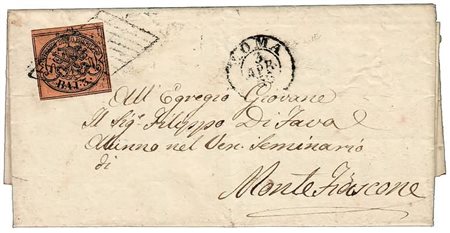 BAJ
ROMA
3
APR
All' Egregio Giovane
Il Sig. Filippo Di Fava
Alunno nel Ven. Seminario
di
Monte Fiascone